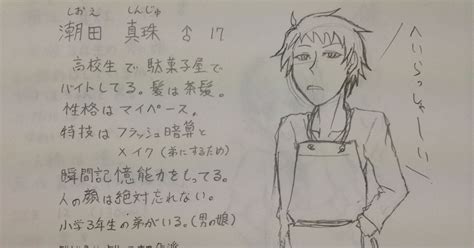 しおえ しんじゅ
潮田 真珠 ♂ 17
高校生で駄菓子屋で
バイトしてる。髪は茶髪。
性格はマイペース。
特技はフラッシュ暗算と
メイク(弟にするため)
瞬間記憶能力をもってる。
人の顔は絶対忘れない。
小学3年生の弟がいる。(男の娘)
へいらっしゃーい